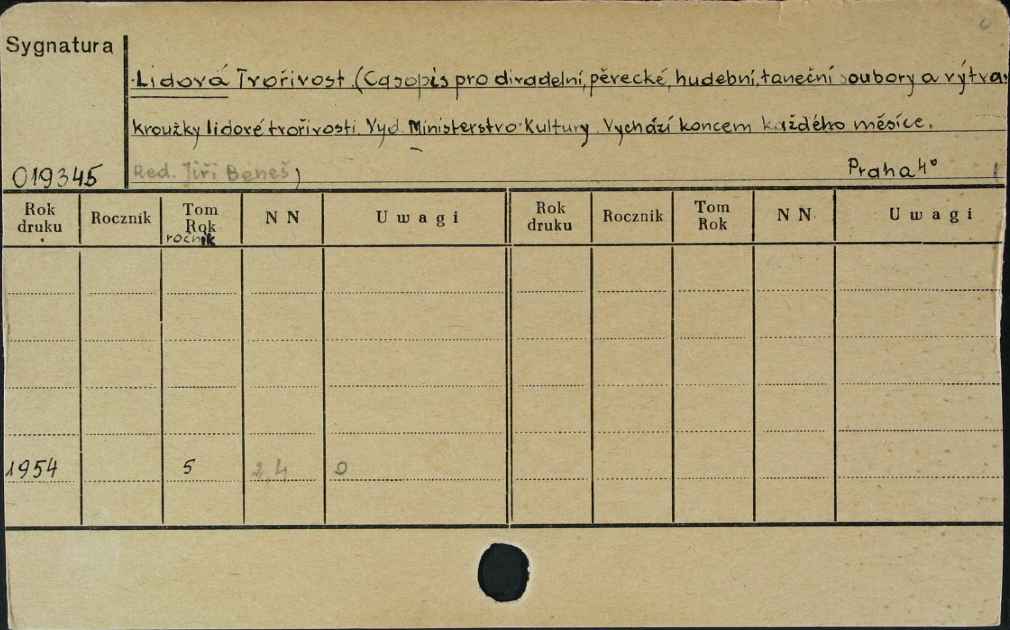 Sygnatura
Lidová Tvořivost. (Casopis pro divadelní, pěvecké, hudební, taneční soubory a výtva-
kroužky lidové tvořivosti. Vyd. Ministerstvo Kultury. Vychází koncem každého měsíce.
019345 Red. Jiří Beneš) Praha 4°
Rok druku Rocznik Tom Rok ročnik N N U w a g i Rok druku Rocznik Tom Rok N N U w a g i
1954 5 2,4 0